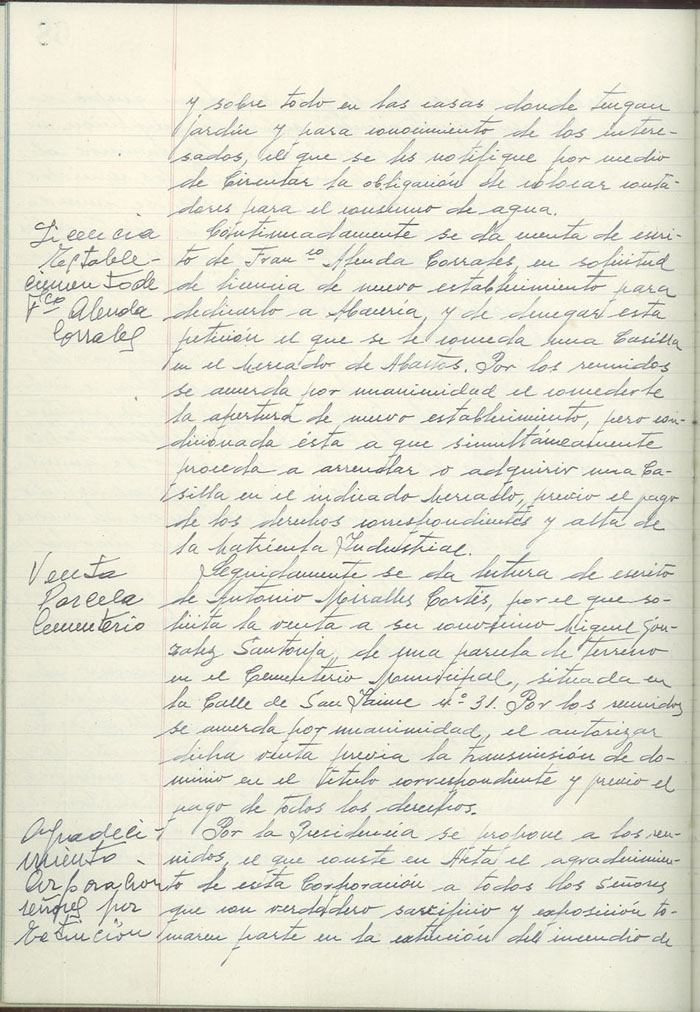 y sobre todo en las casas donde tengan
jardín y para conocimiento de los intere-
sados, el que se les notifique por medio
de Circular la obligación de colocar conta-
dores para el consumo de agua.
Licencia
Establec-
cimiento de
Fco Alenda
Corrales
Continuadamente se da cuenta de escri-
to de Franco Alenda Corrales, en solicitud
de licencia de nuevo establecimiento para
dedicarlo a Abacería, y de denegar esta
petición el que se le conceda una Casilla
en el Mercado de Abastos. Por los reunidos
se acuerda por unanimidad el concederle
la apertura de nuevo establecimiento, pero con-
dicionada ésta a que simultáneamente
proceda a arrendar o adquirir una Ca-
silla en el indicado Mercado, previo el pago
de los derechos correspondientes y alta de
la Matrícula Industrial.
Venta
Parcela
Cementerio
Seguidamente se da lectura de escrito
de Antonio Miralles Cortés, por el que so-
licita la venta a su convecino Miguel Gon-
zalez Santonja, de una parcela de terreno
en el Cementerio Municipal, situada en
la Calle de San Jaime nº 31. Por los reunidos
se acuerda por unanimidad, el autorizar
dicha venta previa la transmisión de do-
minio en el título correspondiente y previo el
pago de todos los derechos.
Agradeci-
miento
Corporación
señores por
Extinción
Por la Presidencia se propone a los reu-
nidos, el que conste en Acta el agradecimien-
to de esta Corporación a todos los Señores
que con verdadero sacrificio y exposición to-
maron parte en la extinción del incendio de